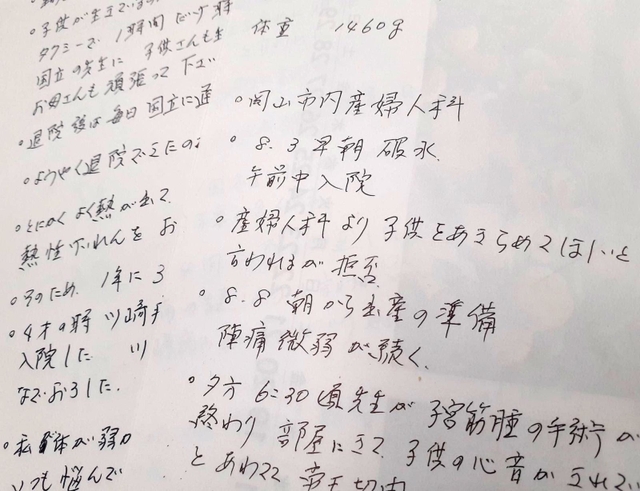 体重 1460g
・岡山市内産婦人科
・8.3 早朝 破水
午前中入院
・産婦人科より 子供をあきらめてほしいと
言われるが 拒否
・8.8 朝から出産の準備
陣痛微弱が続く.
・夕方 6:30頃 先生が 子宮筋腫の手術が
終わり 部屋にきて. 子供の心音が きれて
とあわてて 帝王切開
・子供が生
タクシーで. 1時間
国立の先生に 子供さんも生
お母さんも 頑張って 下さ
・退院後は 毎日 国立に通
・ようやく退院できたの
・とにかく よく熱が出て.
熱性けいれんを お
・そのため. 1年に 3
・4才の時 川崎
入院した 川
なでおろした.
・私 体が弱
いつも悩んで